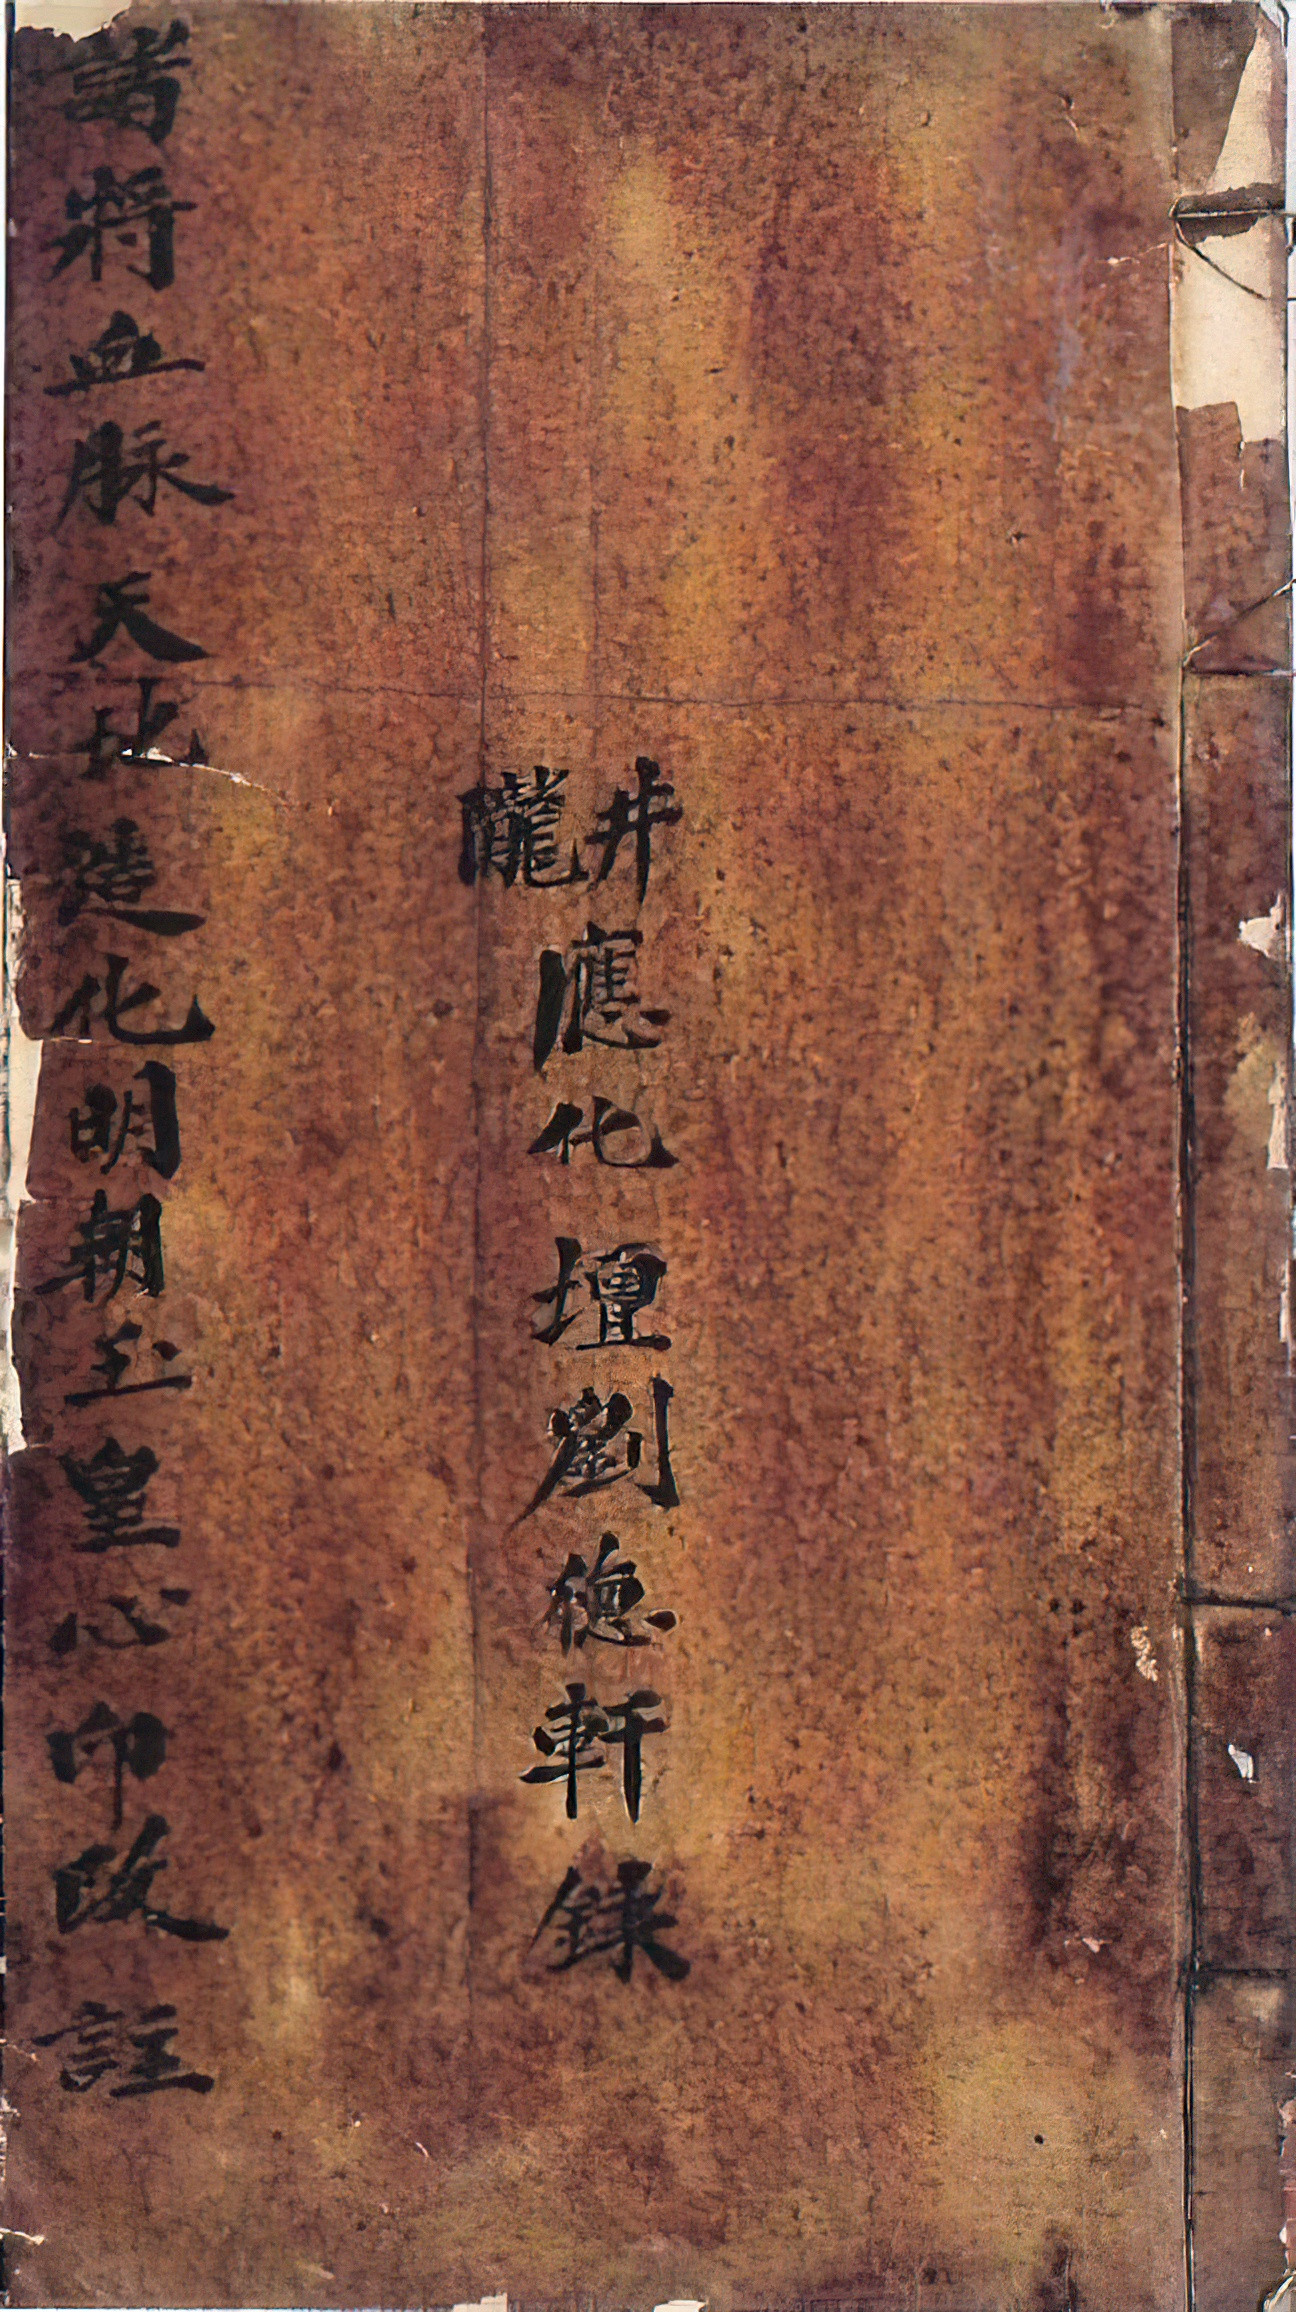 井隴應化壇劉徳軒録
諸將血脉天地造化明朝玉皇心印改註